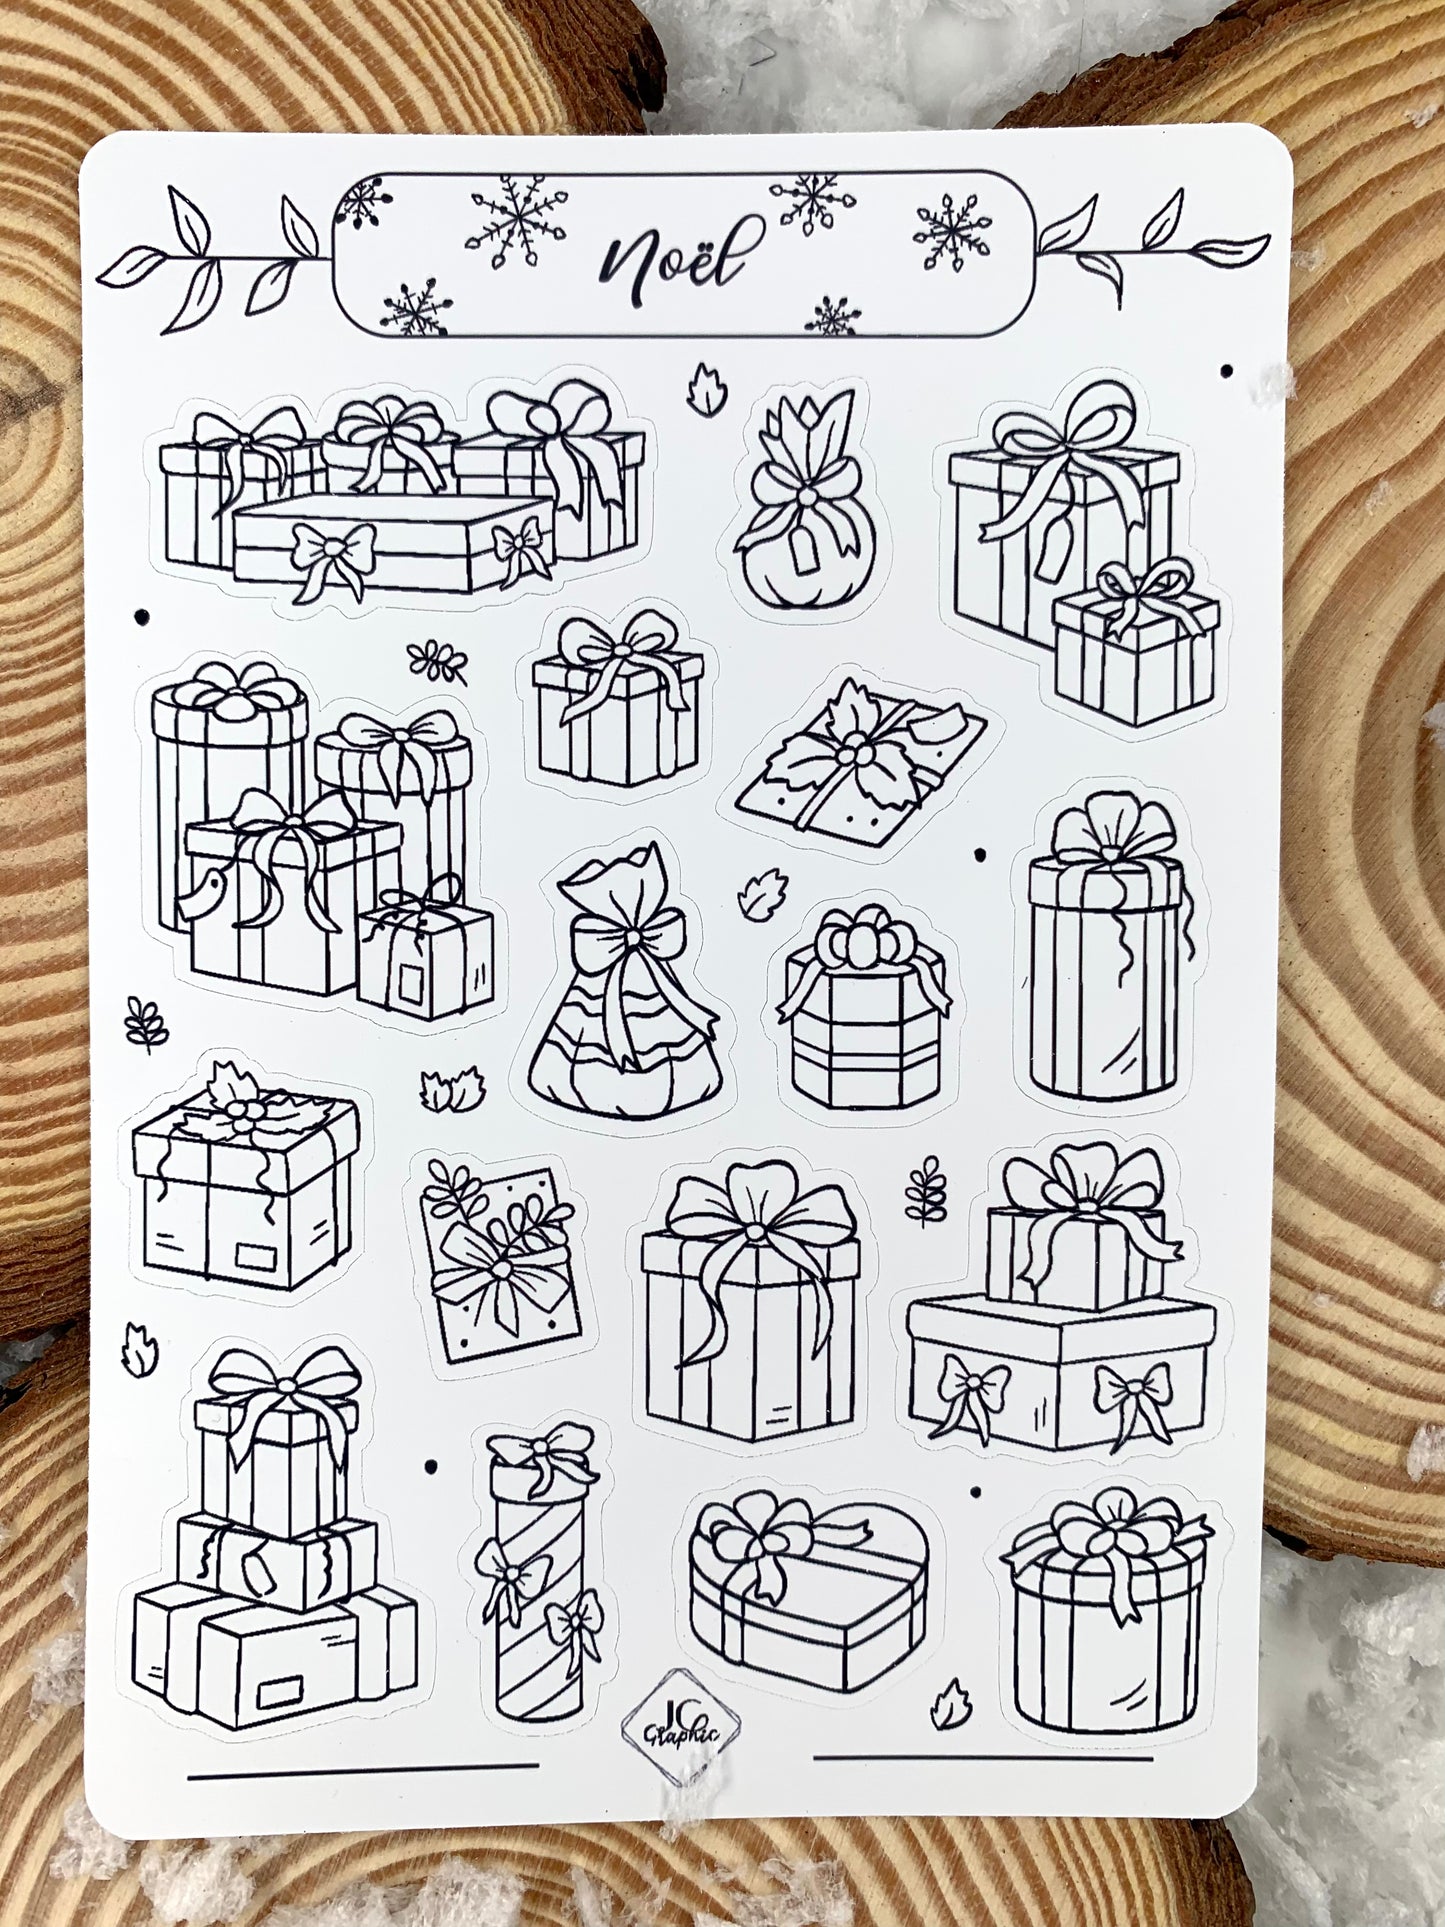 Noël
JC
Graphic